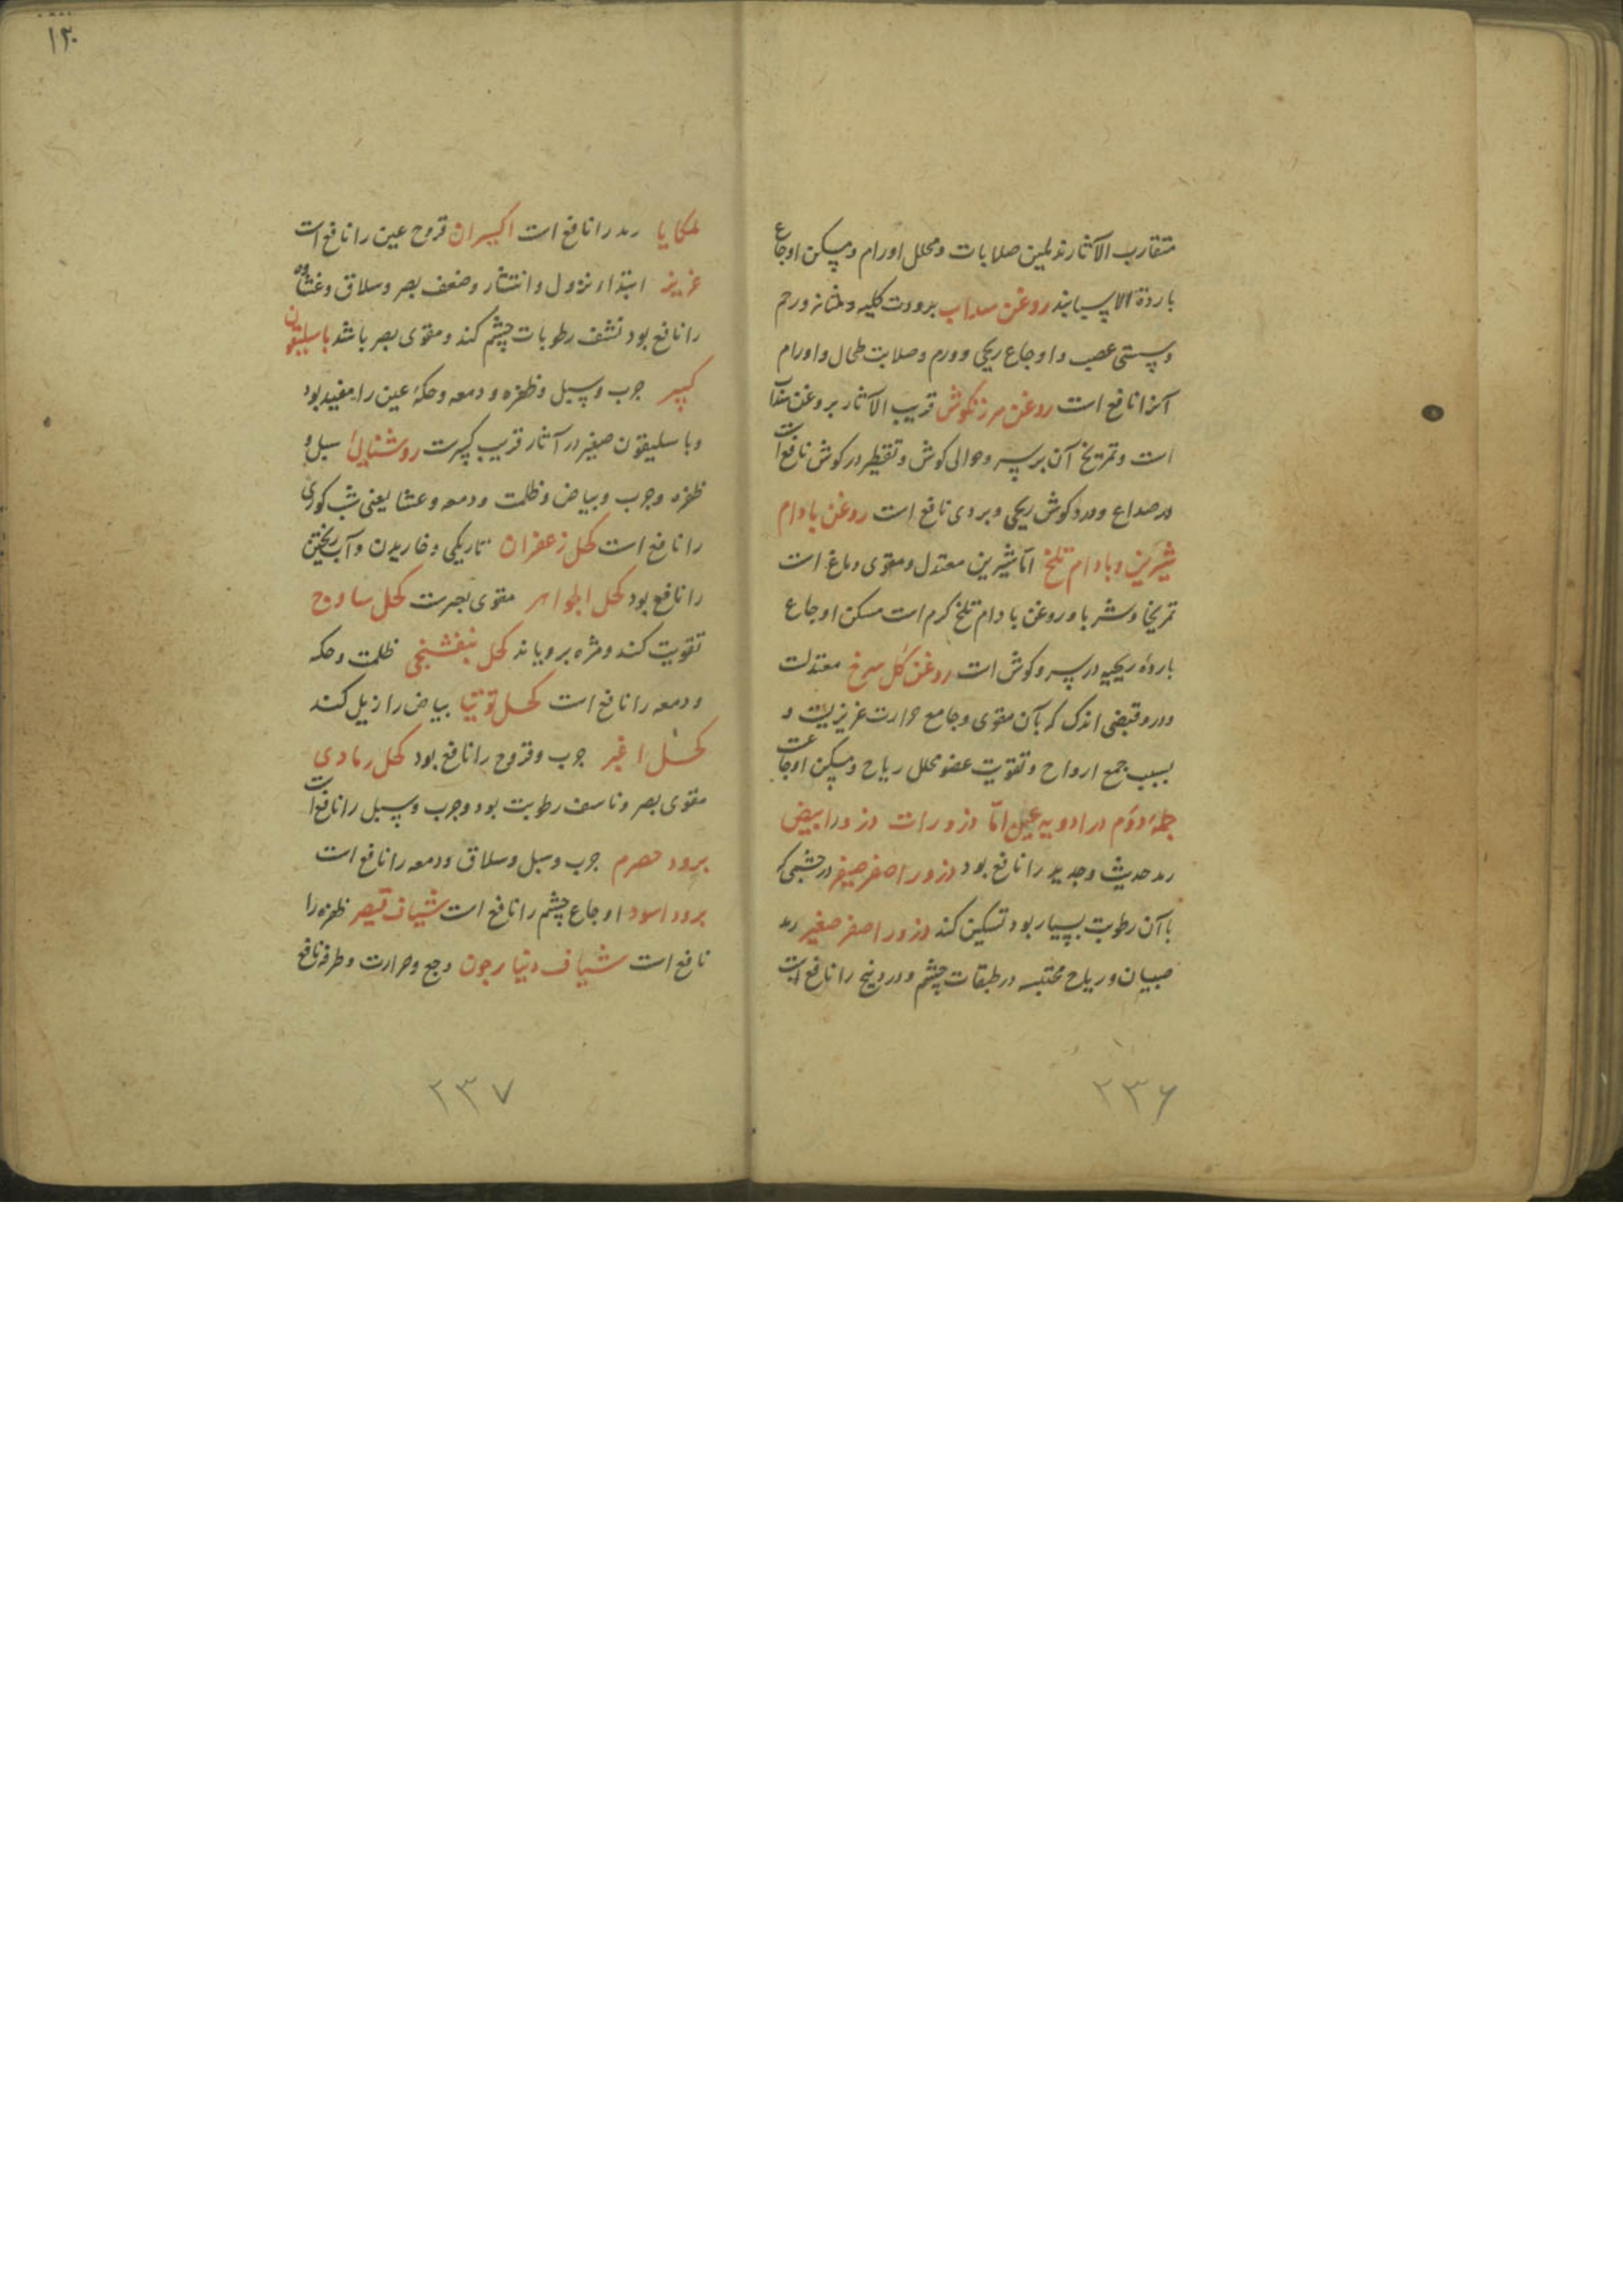 متقارب الآثارند ملین صلابات و محلل اورام و مسکن اوجاع
باردة الاسبابند روغن سداب برودت کلیه و مثانه و رحم
و سستی عصب و اوجاع ریحی و ورم و صلابت طحال و اورام
آنرا نافع است روغن مرزنکوش قریب الآثار بروغن سداب
است و تمریخ آن بر سر و حوالی کوش و تقطیر در کوش نافع است
در صداع و درد کوش ریحی و بردی نافع است روغن بادام
شیرین و بادام تلخ اما شیرین معتدل و مقوی دماغ است
تمریخا و شربا و روغن بادام تلخ کرم است مسکن اوجاع
بارده ریحیه در سر و کوش است روغن کل سرخ معتدلست
و درو قبضی اندک که بآن مقوی و جامع حرارت غریزیست و
بسبب جمع ارواح و تقویت عضو محلل ریاح و مسکن اوجاعست
جملهٔ دوم در ادویه عین امّا ذرورات ذرور ابیض
رمد حدیث و جدید را نافع بود ذرور اصفر صغیر در چشمی که
با آن رطوبت بسیار بود تسکین کند ذرور اصفر صغیر رمد
صبیان و ریاح محتبسه در طبقات چشم و وردینج را نافع است
۲۳۶
۱۳۰
ملکایا رمد را نافع است اکسیران قروح عین را نافع است
عزیز ابتداء نزول و انتشار و ضعف بصر و سلاق و غشاوه
را نافع بود نشف رطوبات چشم کند و مقوی بصر باشد باسلیقون
کبیر جرب و سبل و ظفره و دمعه و حکهٔ عین را مفید بود
و باسلیقون صغیر در آثار قریب کبیرست روشنایی سبل و
ظفره و جرب و بیاض و ظلمت و دمعه و عشا یعنی شب کوری
را نافع است کحل زعفران تاریکی و خاریدن و آب ریختن
را نافع بود کحل الجواهر مقوی بصرست کحل ساذج
تقویت کند و مژه برویاند کحل بنفشجی ظلمت و حکه
و دمعه را نافع است کحل توتیا بیاض را زیل کند
کحل اغبر جرب و قروح را نافع بود کحل رمادی
مقوی بصر و ناسف رطوبت بود و جرب و سبل را نافع است
برود حصرم جرب و سبل و سلاق و دمعه را نافع است
برود اسود اوجاع چشم را نافع است شیاف قیصر ظفره را
نافع است شیاف دنیارجون وجع و حرارت و طرفه نافع
۲۳۷